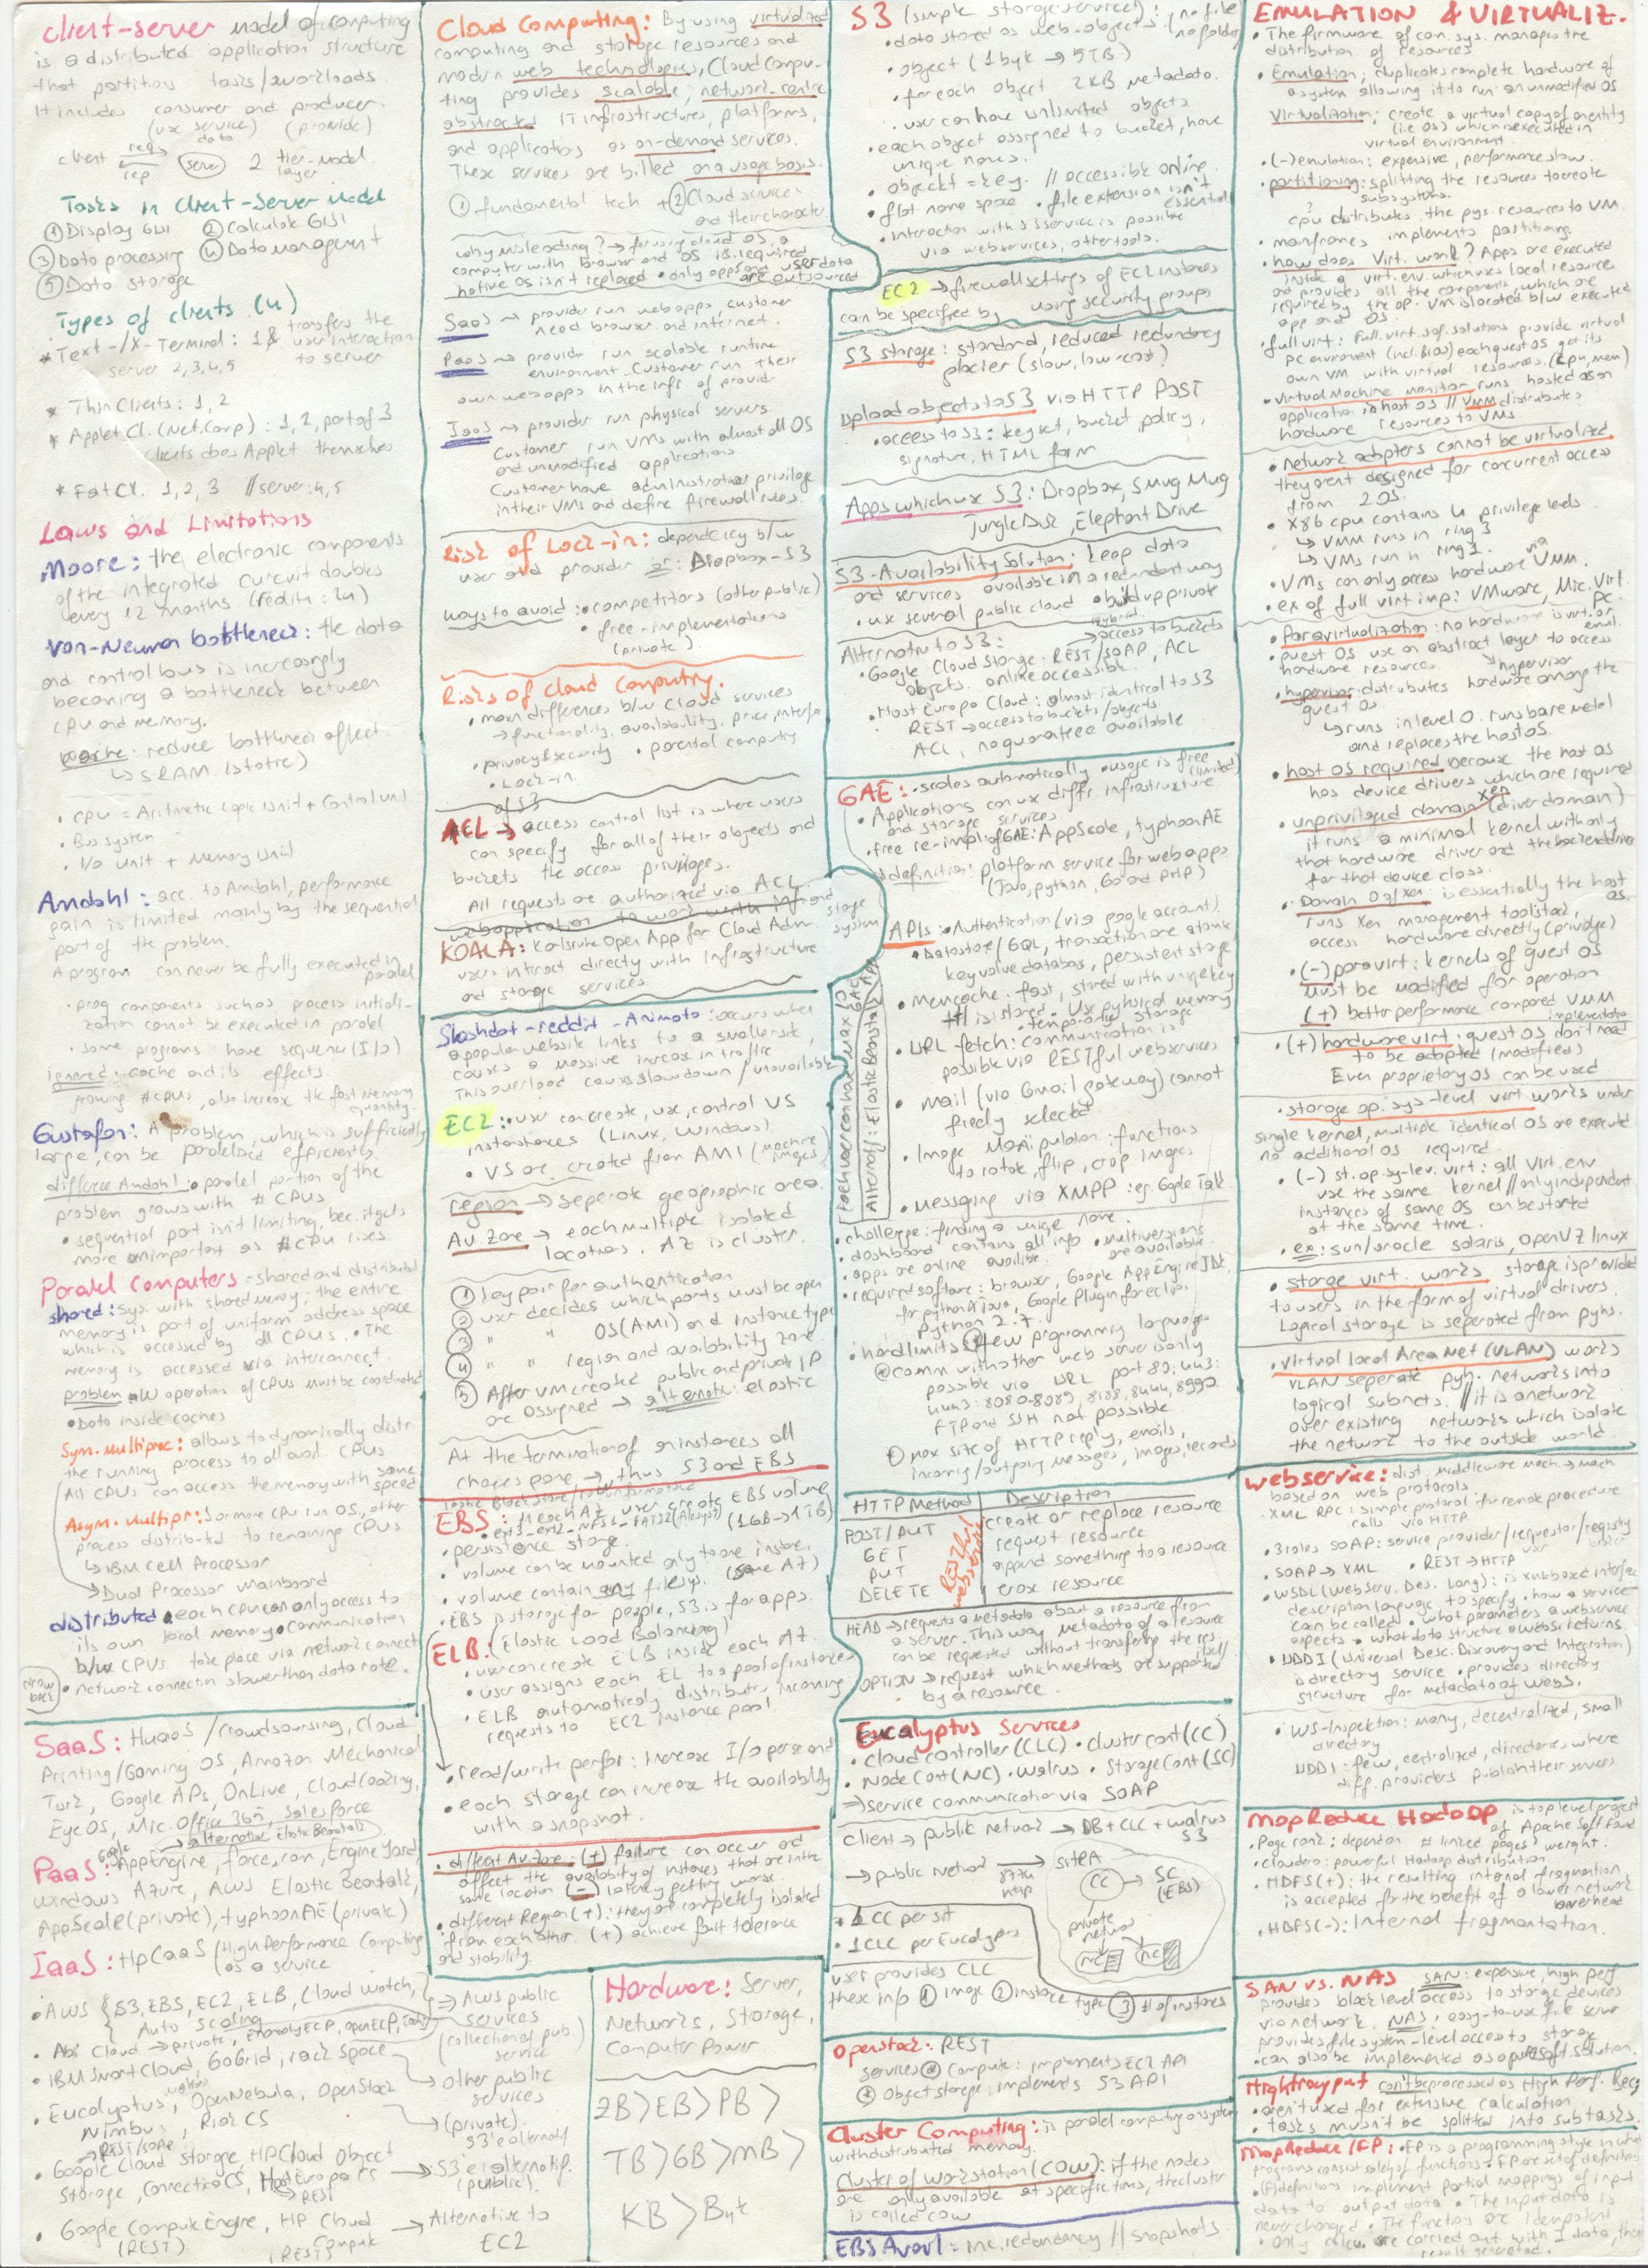 client-server model of computing
is a distributed application structure
that partitions tasks/workloads.
It includes consumer and producer
(use service) (provide)
data
client req rep server 2 tier-model
layer
Tasks in Client-Server Model
① Display GUI ② Calculate GUI
③ Data processing ④ Data management
⑤ Data storage
Types of clients (4)
* Text-/X-Terminal: 1 & transfers the
user interaction
server 2,3,4,5 to server
* Thin Clients: 1, 2
* Applet Cl. (Net.Comp): 1, 2, part of 3
clients does Applet themselves
* Fat Cl. 1, 2, 3 // server: 4, 5
Laws and Limitations
Moore: the electronic components
of the integrated curcuit doubles
every 12 months (redith: 24)
Von-Neuman bottleneck: the data
and control bus is increasingly
becoming a bottleneck between
CPU and memory.
cache: reduce bottleneck effect.
↳ SRAM (static)
• CPU = Aritmetic Logic Unit + Control unit
• Bus system
• I/O Unit + Memory Unit
Amdahl: acc. to Amdahl, performance
gain is limited mainly by the sequential
part of the problem.
A program can never be fully executed in
parallel
• prog components such as process initiali-
zation cannot be executed in parallel
• some programs have sequence (I/O)
ignored: cache and its effects
growing #CPUs, also increase the fast memory
quantity.
Gustafon: A problem, which is sufficiently
large, can be paralelized efficiently.
difference Amdahl: • paralel portion of the
problem grows with # CPUs
• sequential part isn't limiting, bec. it gets
more unimportant as #CPU rises
Paralel Computers - shared and distributed
shared: sys. with shared memory: the entire
memory is part of uniform address space
which is accessed by all CPUs. • The
memory is accessed via interconnect.
problem • W operations of CPUs must be coordinated
• Data inside caches
Sym. Multiproc: allows to dynamically distr.
the running process to all avail. CPUs
All CPUs can access the memory with same
speed
Asym. Multipr: 1 or more CPU run OS, other
process distributed to remaining CPUs
↳ IBM Cell Processor
Dual Processor Mainboard
distributed • each CPU can only access to
its own local memory • Communication
b/w CPUs take place via network connect
• network connection slower than data rate.
SaaS: HuaaS / Crowdsourcing, Cloud
Printing/Gaming OS, Amazon Mechanical
Turk, Google APs, OnLive, Cloud Coding,
EyeOS, Mic. Office 365, Salesforce
→ alternative Elastic Beanstalk
PaaS: Google AppEngine, force.com, Engine Yard,
Windows Azure, AWS Elastic Beanstalk,
AppScale (private), typhoonAE (private)
IaaS: HPCaaS (High Performance Computing
as a service
• AWS { S3, EBS, EC2, ELB, Cloud Watch,
Auto Scaling } ⇒ AWS public
services
(collection of pub.)
service
• Abi Cloud → private, Enomaly ECP, openECP,
• IBM Smart Cloud, GoGrid, rack space → other public
services
• Eucalyptus, OpenNebula, OpenStack
walrus
Nimbus, Riak CS → (private)
S3'e alternatif
REST/SOAP
• Google Cloud Storage, HP Cloud Object
Storage, Connectria CS, Host Europa CS → S3'e alternatif.
(public)
→ REST
• Google Compute Engine, HP Cloud → Alternative to
(REST) (REST) Compute EC2
Cloud Computing: By using virtualized
computing and storage resources and
modern web technologies, Cloud Compu-
ting provides scalable, network-centric
abstracted IT infrastructures, platforms,
and applications as on-demand services.
These services are billed on a usage basis.
① fundamental tech + ② Cloud services
and their character.
why misleading? → for using cloud OS, a
computer with browser and OS is required
native OS isn't replaced • only apps and user data
are outsourced
SaaS → provider run web apps, customer
need browser and internet.
PaaS → provider run scalable runtime
environment. Customer run their
own webapps in the infr. of provider
IaaS → provider run physical servers
Customer run VMs with almost all OS
and unmodified applications
Customer have administrator privilege
in their VMs and define firewall rules.
Risk of Lock-in: dependency b/w
user and provider ex: Dropbox-S3
ways to avoid: • competitors (other public)
• free-implementations
(private).
Risks of Cloud Computing.
• main differences b/w Cloud services
→ functionality, availability, price, interface
• privacy & security • parental computing
• Lock-in
of S3
ACL → access control list is where users
can specify for all of their objects and
buckets the access privileges.
All requests are authorized via ACL
web application to work with IAI and
storage
system
KOALA: Karlsruhe Open App for Cloud Adm.
users interact directly with infrastructure
and storage services
Slashdot-reddit-Animoto: occurs when
a popular website links to a smaller site,
causes a massive increase in traffic
This overload causes slowdown / unavailable
EC2: • user can create, use, control VS
instances (Linux, Windows)
• VS are created from AMI (machine
images)
region → seperate geographic area.
Av. Zone → each multiple isolated
locations. AZ is cluster.
① key pair for authentication
② user decides which ports must be open
③ " " OS (AMI) and instance type
④ " " region and availability zone.
⑤ After VM created public and private IP
are assigned → alternative: elastic
At the termination of an instances all
changes gone → thus S3 and EBS
EBS: in each AZ user create EBS volume
• ext3, ext2, NFS, FAT32 (1GB→1TB)
• persistence storage.
• volume can be mounted only to one instan.
(same AZ)
• volume contain any filesys.
• EBS is storage for people, S3 is for apps.
ELB: (Elastic Load Balancing)
• user can create ELB inside each AZ.
• user assigns each EL to a pool of instance
• ELB automaticaly distributes incoming
requests to EC2 instance pool
• read/write perfor: increase I/O perse and
• each storage can increase the availability
with a snapshot.
• diffent Av.Zone: (+) failure can occur and
affect the availability of instances that are in the
same location (-) latency getting worse
• different Region (+): they are completely isolated
from each other. (+) achieve fault tolerance
and stability.
Hardware: Server,
Networks, Storage,
Computer Power
ZB > EB > PB >
TB > GB > MB >
KB > Byt
S3 (simple storage service): (no file
no folder)
• data stored as web-objects
• object (1 byte → 5TB)
• for each object 2KB metadata.
• user can have unlimited objects
• each object assigned to bucket, have
unique names.
• object = key. // accessible online
• flat name space • file extension isn't
essential
• Interaction with S3 service is possible
via webservices, other tools.
EC2 → firewall settings of EC2 instances
can be specified by using security groups
S3 storage: standard, reduced redundancy
glacier (slow, low-cost)
Upload objects to S3 via HTTP POST
• access to S3: key set, bucket, policy,
signature, HTML form
Apps which use S3: Dropbox, SmugMug
JungleDisk, ElephantDrive
S3-Availability Solution: Keep data
and services available in a redundant way
• use several public cloud • build up private
Hybrid
Alternative to S3: → access to buckets
• Google Cloud Storage. REST/SOAP, ACL
objects. online accessible.
• Host Europe Cloud: almost identical to S3
REST → access to buckets/objects.
ACL, no guarantee available
GAE: • scales automatically • usage is free
(limited)
• Applications can use diffr. infrastructure
and storage services.
• free re-impl. of GAE: AppScale, typhoonAE
definition: platform service for web apps
(Java, python, Go and PHP)
each user can have max 10
GAE app
Alternatif: Elastic Beanstalk
APIs: • Authentication (via google account)
• Datastore/GQL, transaction are atomic
key value database, persistent storage
• Memcache: fast, stored with unique key
It is stored. Use pyhsical memory
• temporarily storage
• URL fetch: communication is
possible via RESTful webservices
• Mail (via Gmail gateway) cannot
freely selected
• Image Manipulation: functions
to rotate, flip, crop images
• Messaging via XMPP: eg. Google Talk
• challenge: finding a unique name.
• dashboard contains all info • multiversions
are available
• apps are online available.
• required software: browser, Google App Engine JDK,
for python & java, Google Plugin for eclips.
Python 2.7
• hard limits few programming language
• comm with other web server is only
possible via URL port 80, 443:
4443: 8080-8089, 8188, 8444, 8990.
FTP and SSH not possible
• max size of HTTP reply, emails,
incoming/outgoing messages, images, records
HTTP Method Description
POST/PUT create or replace resource
GET request resource
PUT append something to a resource
DELETE erase resource
RESTful
webservice
HEAD → requests a metadata about a resource from
a server. This way metadata of a resource
can be requested without transfering the res.
itself
OPTION → request which methods are supported
by a resource.
Eucalyptus Services
• Cloud controller (CLC) • cluster cont (CC)
• Node Cont (NC) • Walrus • Storage Cont (SC)
⇒ service communication via SOAP
client → public network → DB + CLC + walrus
S3
→ public network → site A
8774
http
CC → SC
(EBS)
private
network
NC NC
• 1 CC per sit
• 1 CLC per Eucalyptus
user provides CLC
these info ① image ② instance type ③ # of instances
Openstack: REST
services • Compute: implements EC2 API
• Object storage: implements S3 API
Cluster Computing: is paralel computing on system
with distributed memory.
Cluster of workstation (COW): if the nodes
are only available at specific times, the cluster
is called cow
EBS Avail: inc. redundancy // snapshots
EMULATION & VIRTUALIZ.
• The firmware of con. sys. manages the
distribution of resources
• Emulation; duplicates complete hardware of
a system allowing it to run an unmodified OS
Virtualization; create a virtual copy of an entity
(i.e OS) which is executed in
virtual environment.
• (-) emulation: expensive, performance slow.
• partitioning: splitting the resources to create
subsystems.
cpu distributes the pys. resources to VM.
• mainframes implements partitioning.
• how does Virt. work? Apps are executed
inside a virt. env. which uses local resources
and provides all the components, which are
required by the op. VM is located b/w executed
app and OS.
• full virt: Full. virt. sof. solutions provide virtual
pc enviroment (incl. BIOS) each guest OS get its
own VM with virtual resources. (cpu, mem)
• Virtual Machine monitor runs hosted as an
application in host OS // VMM distributes
hardware resources to VMs.
• network adapters cannot be virtualized
they arent designed for concurrent access
from 2 OS.
• X86 cpu contains 4 privilege levels
↳ VMM runs in ring 3
↳ VMs run in ring 1.
• VMs can only access hardware via VMM.
• ex of full virt imp: VMware, Mic. Virt.
PC.
• Paravirtualization: no hardware is virt. or
emul.
• guest OS use an abstract layer to access
hardware resources. → hypervisor
• hypervisor: distributes hardware among the
guest os.
↳ runs in level 0. runs bare metal
and replaces the host OS.
• host OS required because the host OS
has device drivers which are required
• unprivileged domain xen (driver domain)
it runs a minimal kernel with only
that hardware driver and the backend driver
for that device class.
• Domain 0 of xen: is essentially the host
OS.
runs Xen management toolstack,
access hardware directly (privilege)
• (-) paravirt: kernels of guest OS
must be modified for operation
(+) better performance compared VMM
implementation
• (+) hardware virt: guest OS don't need
to be adapted (modified)
Even proprietary OS can be used
• storage op. sys-level virt works under
single kernel, multiple identical OS are execute.
no additional OS required.
• (-) st. op. sy-lev. virt: all virt. env
use the same kernel // only independent
instances of same OS can be started
at the same time.
• ex: sun/oracle solaris, openVZ linux
• storage virt. works storage is provided
to users in the form of virtual drivers.
Logical storage is seperated from pyhs.
• Virtual Local Area Net (VLAN) works
VLAN seperate pyh. networks into
logical subnets. // it is a network
over existing networks which isolate
the network to the outside world.
webservice: dist. middleware mech. → mach
based on web protocols.
• XML RPC: simple protocal for remote procedure
calls via HTTP
• 3 roles SOAP: service provider/requestor/registry
user broker
• SOAP → XML • REST → HTTP
• WSDL (Web Serv. Des. Lang): is xml based interface
description language to specify • how a service
can be called • what parameters a webservice
expects • what data structure a webs. returns.
• UDDI (Universal Desc. Discovery and Integration)
is directory service • provides directory
structure for metadata of webs.
• WS-Inspektion: many, decentralized, small
directory
UDDI: few, centralized, directories where
diff. providers publish their services.
MapReduce Hadoop is top level project
of Apache Soft Found
• Page rank: depends on # linked pages' weight.
• cloudera: powerful Hadoop distribution.
• HDFS (+): the resulting internal fragmantion,
is accepted for the benefit of a lower network
overhead
• HDFS (-): Internal fragmentation.
SAN vs. NAS SAN: expensive, high perf.
provides block level access to storage devices
via network. NAS: easy-to-use file server
provides file system-level access to storage
• can also be implemented as opensoft. solution.
Hightrougput can't be processed as High Perf. Becs
• aren't used for extensive calculation.
• tasks mustn't be splitted into subtasks.
MapReduce/FP: • FP is a programming style in which
programs consist solely of functions • FP are set of definitions
• (F) definitions implement partial mappings of input
data to output data • The input data is
never changed • The functions are idempotent
• Only calcu. are carried out with 1 data, then
result generated.